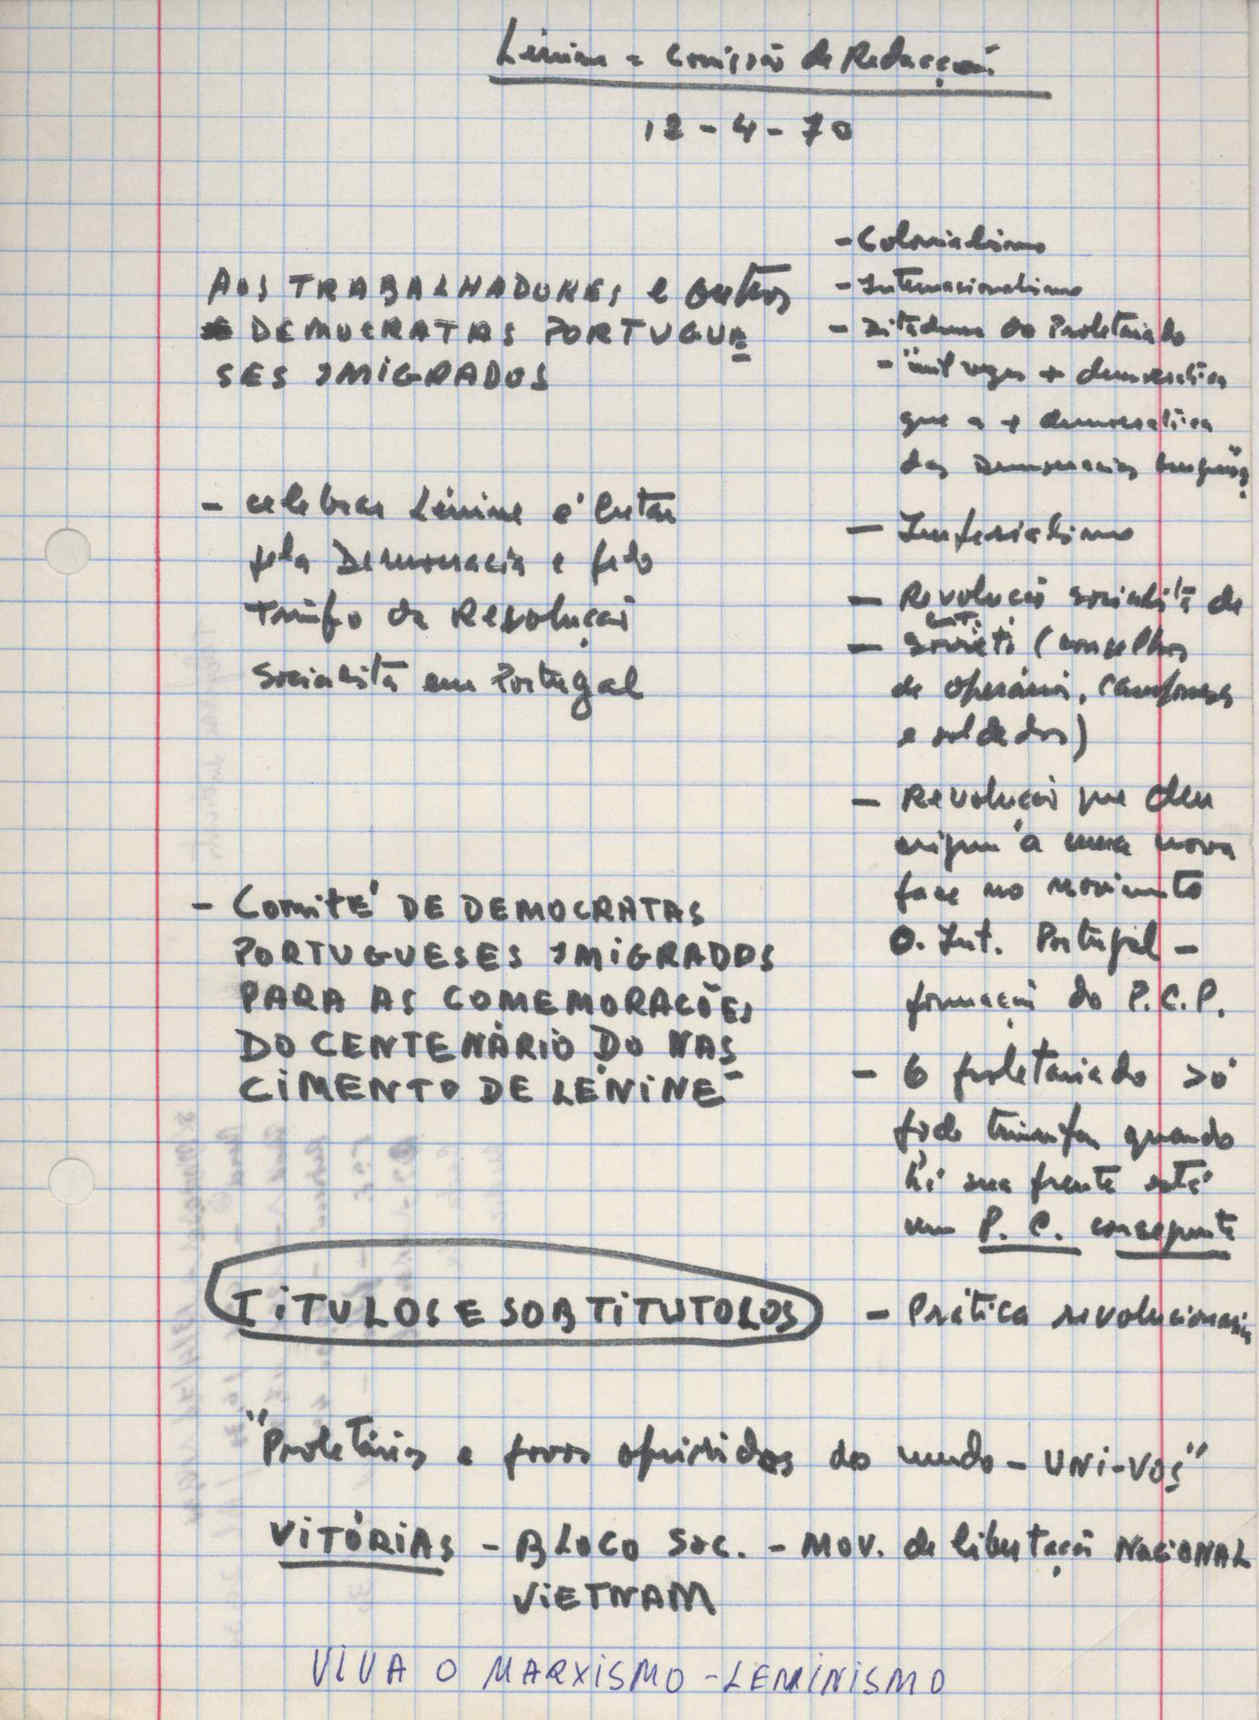 Lénine - Comissão de Redacção
12-4-70
AOS TRABALHADORES e outros
DEMOCRATAS PORTUGUE
SES IMIGRADOS
- celebrar Lénine é lutar
pela Democracia e pelo
Triunfo da Revolução
Socialista em Portugal
- Comité DE DEMOCRATAS
PORTUGUESES IMIGRADOS
PARA AS COMEMORAÇÕES
DO CENTENÁRIO DO NAS
CIMENTO DE LÉNINE
TÍTULOS E SOBTITUTOLOS
- Colonialismo
- Internacionalismo
- Ditadura do Proletariado
- "mil vezes + democrática
que a + democrática
das Democracias burguesas"
- Imperialismo
- Revolução socialista de
out.
- Soviets (conselhos
de operários, camponeses
e soldados)
- Revolução que deu
origem à uma nova
fase no movimento
O. Int. Portugal -
formação do P.C.P.
- O proletariado só
pode triunfar quando
há sua frente está
um P. C. consequente
- Prática revolucionaria
"Proletários e povos oprimidos do mundo - UNI-VOS"
VITÓRIAS - BLOCO Soc. - MOV. de libertação NACIONAL
VIETNAM
VIVA O MARXISMO - LEMINISMO